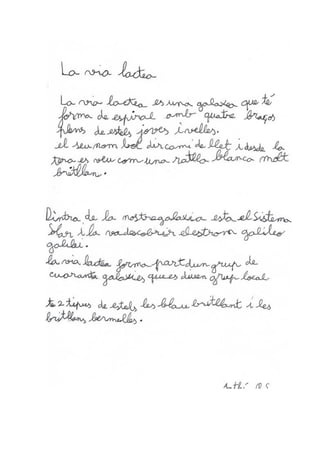 La via lactea
La via lactea es una galaxia que té
forma de espiral amb quatre braços
plens de estels joves i velles.
el seu nom bol dir cami de llet i desde la
tera es veu com una ratlla blanca molt
brillan.
Dintra de la nostra galaxia esta el Sistema
Solar i la va descobrir el estronom galileo
galilei.
la via lactea forma part dun grup de
cuaranta galaxies que es diuen grup local
te 2 tipus de estels les blau brillant i les
brillans bermelles.